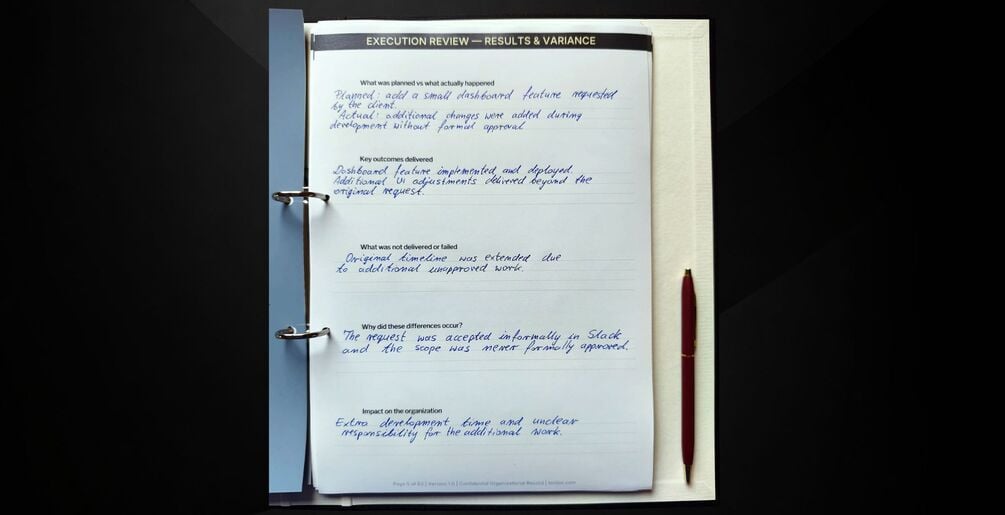 EXECUTION REVIEW — RESULTS & VARIANCE
What was planned vs what actually happened
Planned: add a small dashboard feature requested
by the client.
Actual: additional changes were added during
development without formal approval
Key outcomes delivered
Dashboard feature implemented and deployed.
Additional UI adjustments delivered beyond the
original request.
What was not delivered or failed
Original timeline was extended due
to additional unapproved work.
Why did these differences occur?
The request was accepted informally in Slack
and the scope was never formally approved.
Impact on the organization
Extra development time and unclear
responsibility for the additional work.
Page 5 of | Version 1.0 | Confidential Organizational Record |